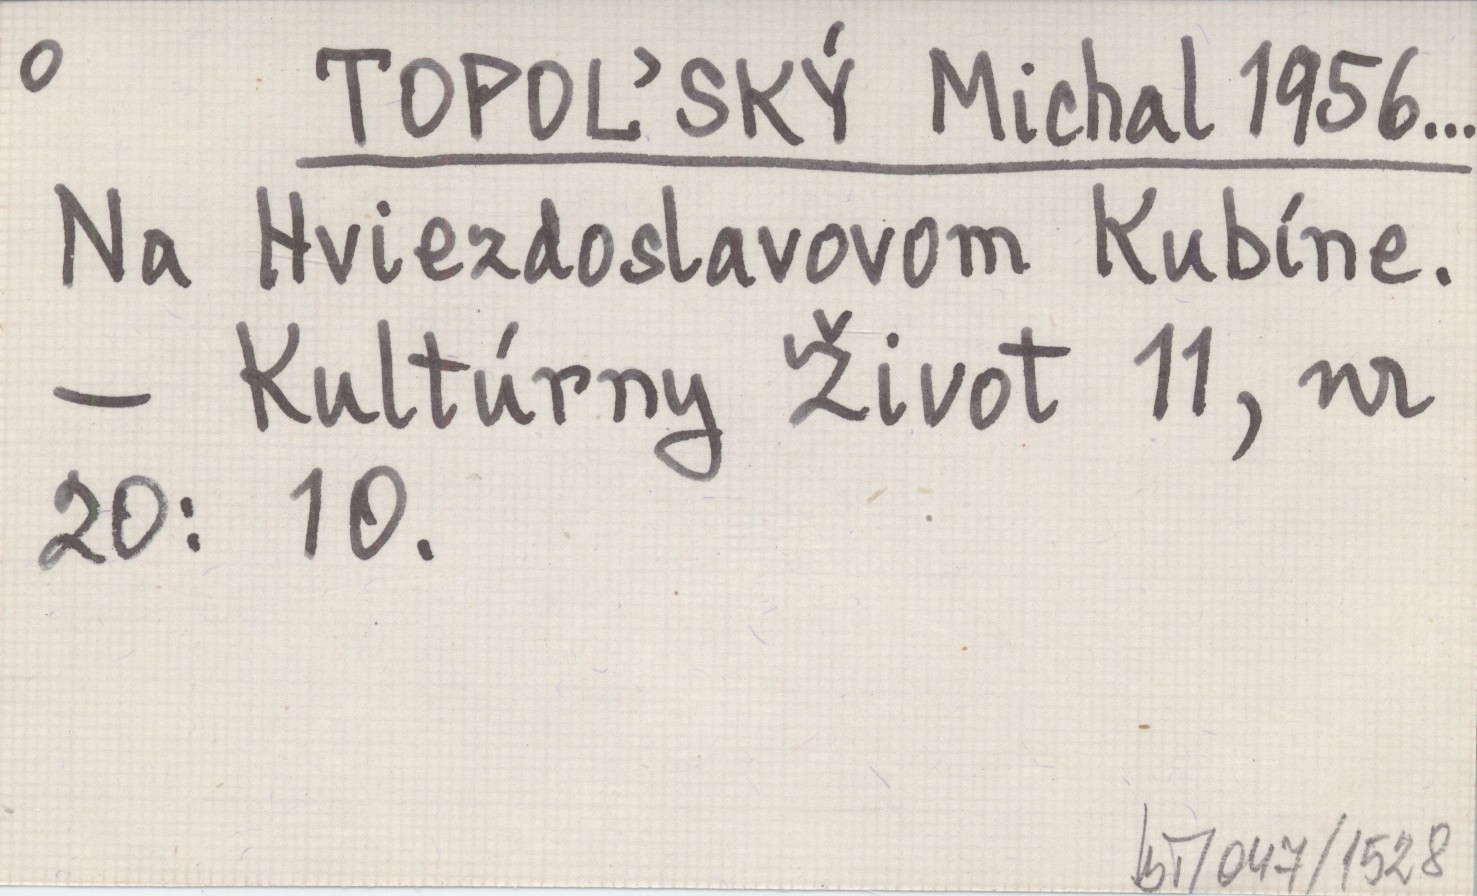 o TOPOĽSKÝ Michal 1956...
Na Hviezdoslavovom Kubíne.
— Kultúrny Život 11, nr
20: 10.
/047/1528